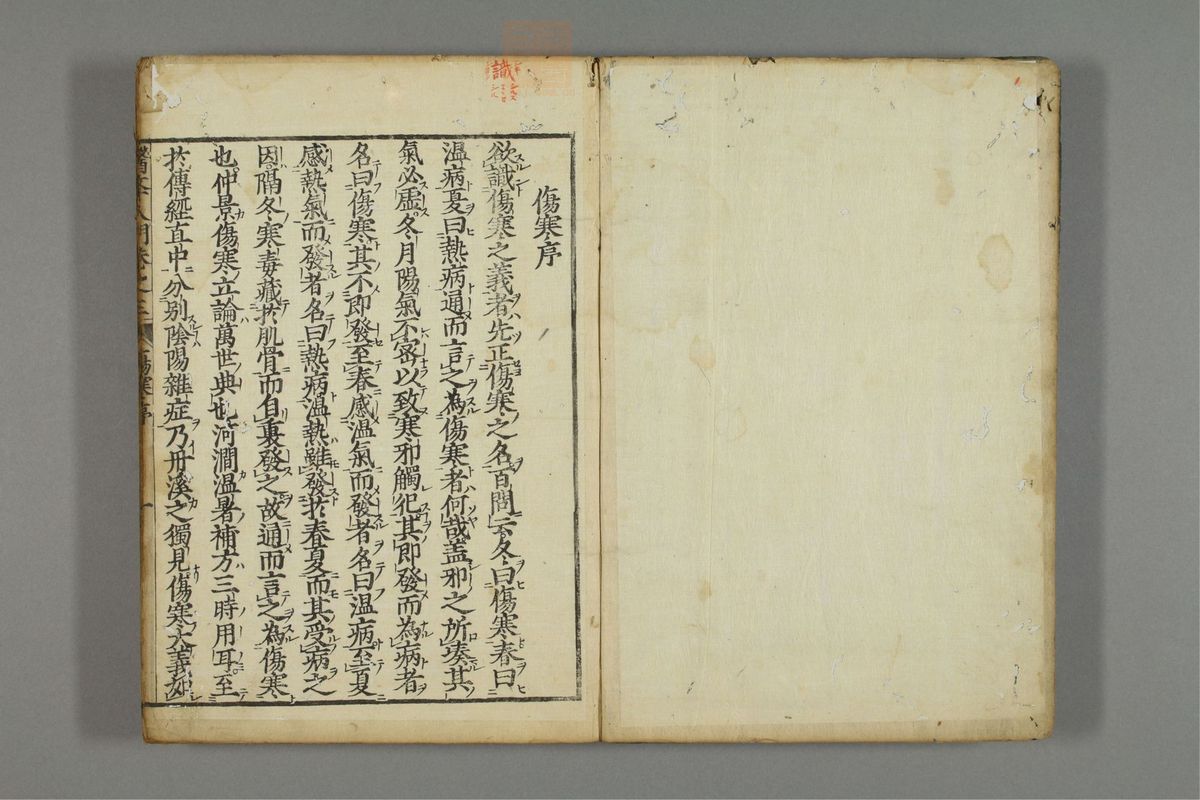 傷寒序
欲識傷寒之義者先正傷寒之名百問云冬曰傷寒春曰
溫病夏曰熱病通而言之為傷寒者何哉盖邪之所湊其
氣必虛冬月陽氣不密以致寒邪觸犯其即發而為病者
名曰傷寒其不即發至春感溫氣而發者名曰溫病至夏
感熱氣而發者名曰熱病溫熱雖發於春夏而其受病之
因隔冬寒毒藏於肌骨而自裏發之故通而言之為傷寒
也仲景傷寒立論萬世典也河澗溫暑補方三時用耳至
於傳經直中分別陰陽雜症乃丹溪之獨見傷寒大義如
傷寒序 一
識